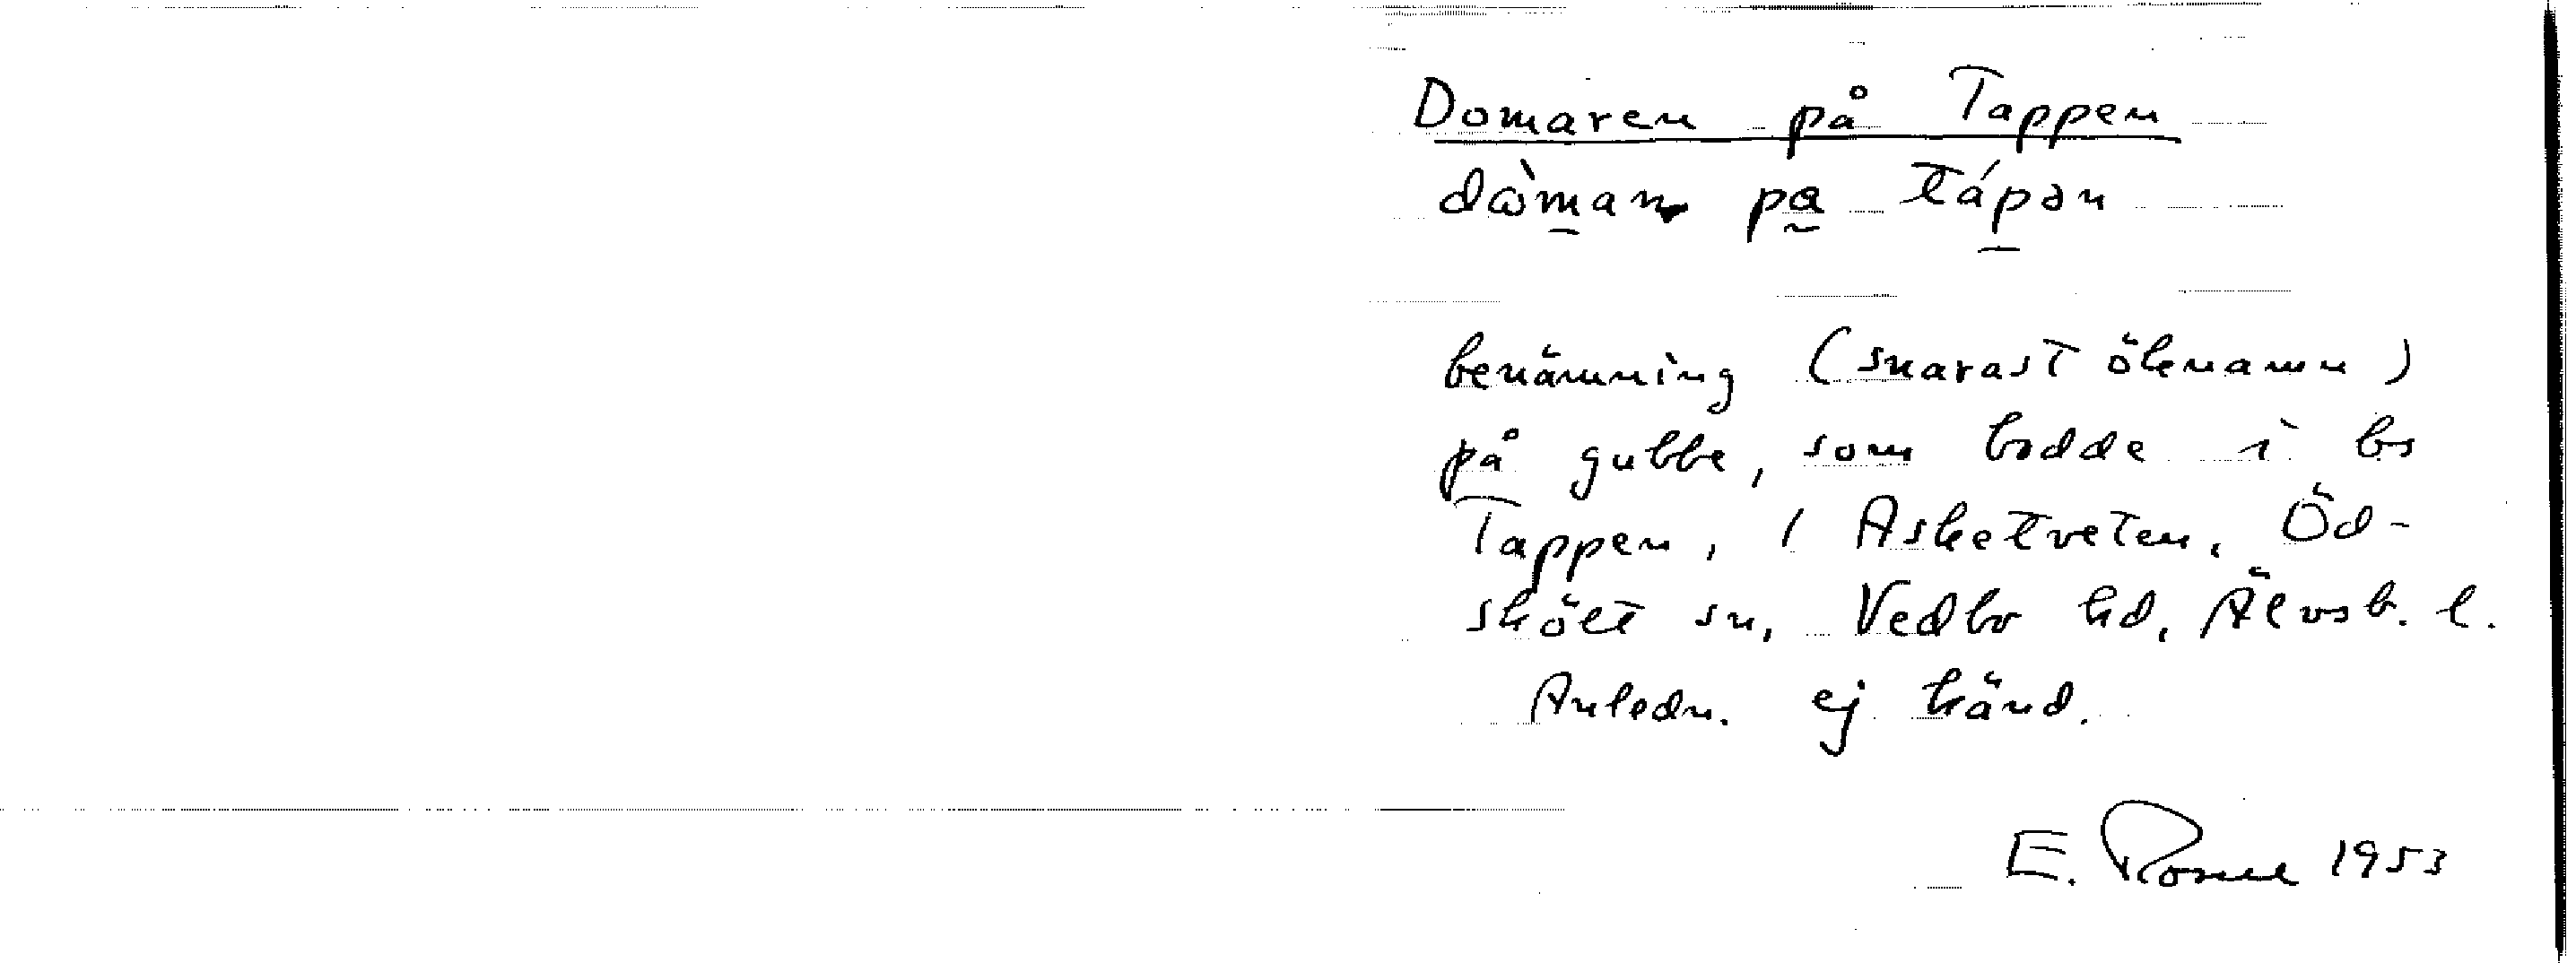 Domaren på Tappen
dòman pa tápən
benämning (snarast öknamn)
på gubbe, som bodde i bs
Tappen, / Asketveten, Öd-
skölt sn, Vedbo hd, Älvsb. l.
Anledn. ej känd.
E. 1953